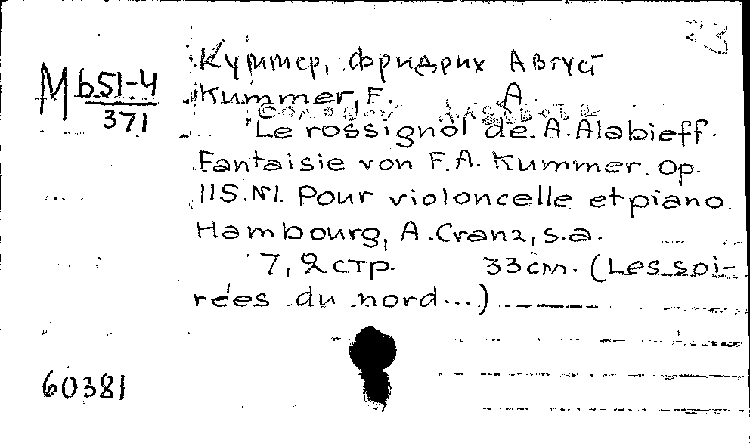 Куммер, Фридрих Август
М b51-4
371
Kummer, F. A.
Le rossignol de A. Alabieff.
Fantaisie von F. A. Kummer. Op.
115. №1. Pour violoncelle et piano
Hambourg, A. Cranz, s.a.
7, 2 стр. 33 см. (Les soi-
rées du nord...)
60381